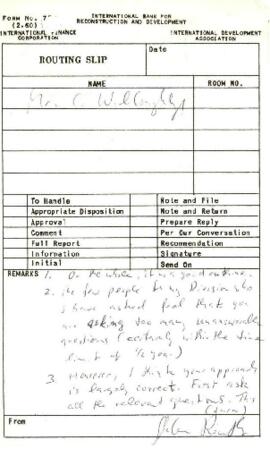 FORM No. 75
(2.60)
INTERNATIONAL BANK FOR
RECONSTRUCTION AND DEVELOPMENT
INTERNATIONAL FINANCE
CORPORATION
INTERNATIONAL DEVELOPMENT
ASSOCIATION
Date
ROUTING SLIP
NAME
ROOM NO.
Mr. C. Willoughby
To Handle
Note and File
Appropriate Disposition
Note and Return
Approval
Prepare Reply
Comment
Per Our Conversation
Full Report
Recommendation
Information
Signature
Initial
Send On
REMARKS
1. On the whole, it is a good outline.
2. The few people in my Division who
I have asked feel that you
are asking too many unanswerable
questions (certainly within the time
limit of ½ year)
3. However, I think your approach
is largely correct. First ask
all the relevant questions. This
(turn)
From